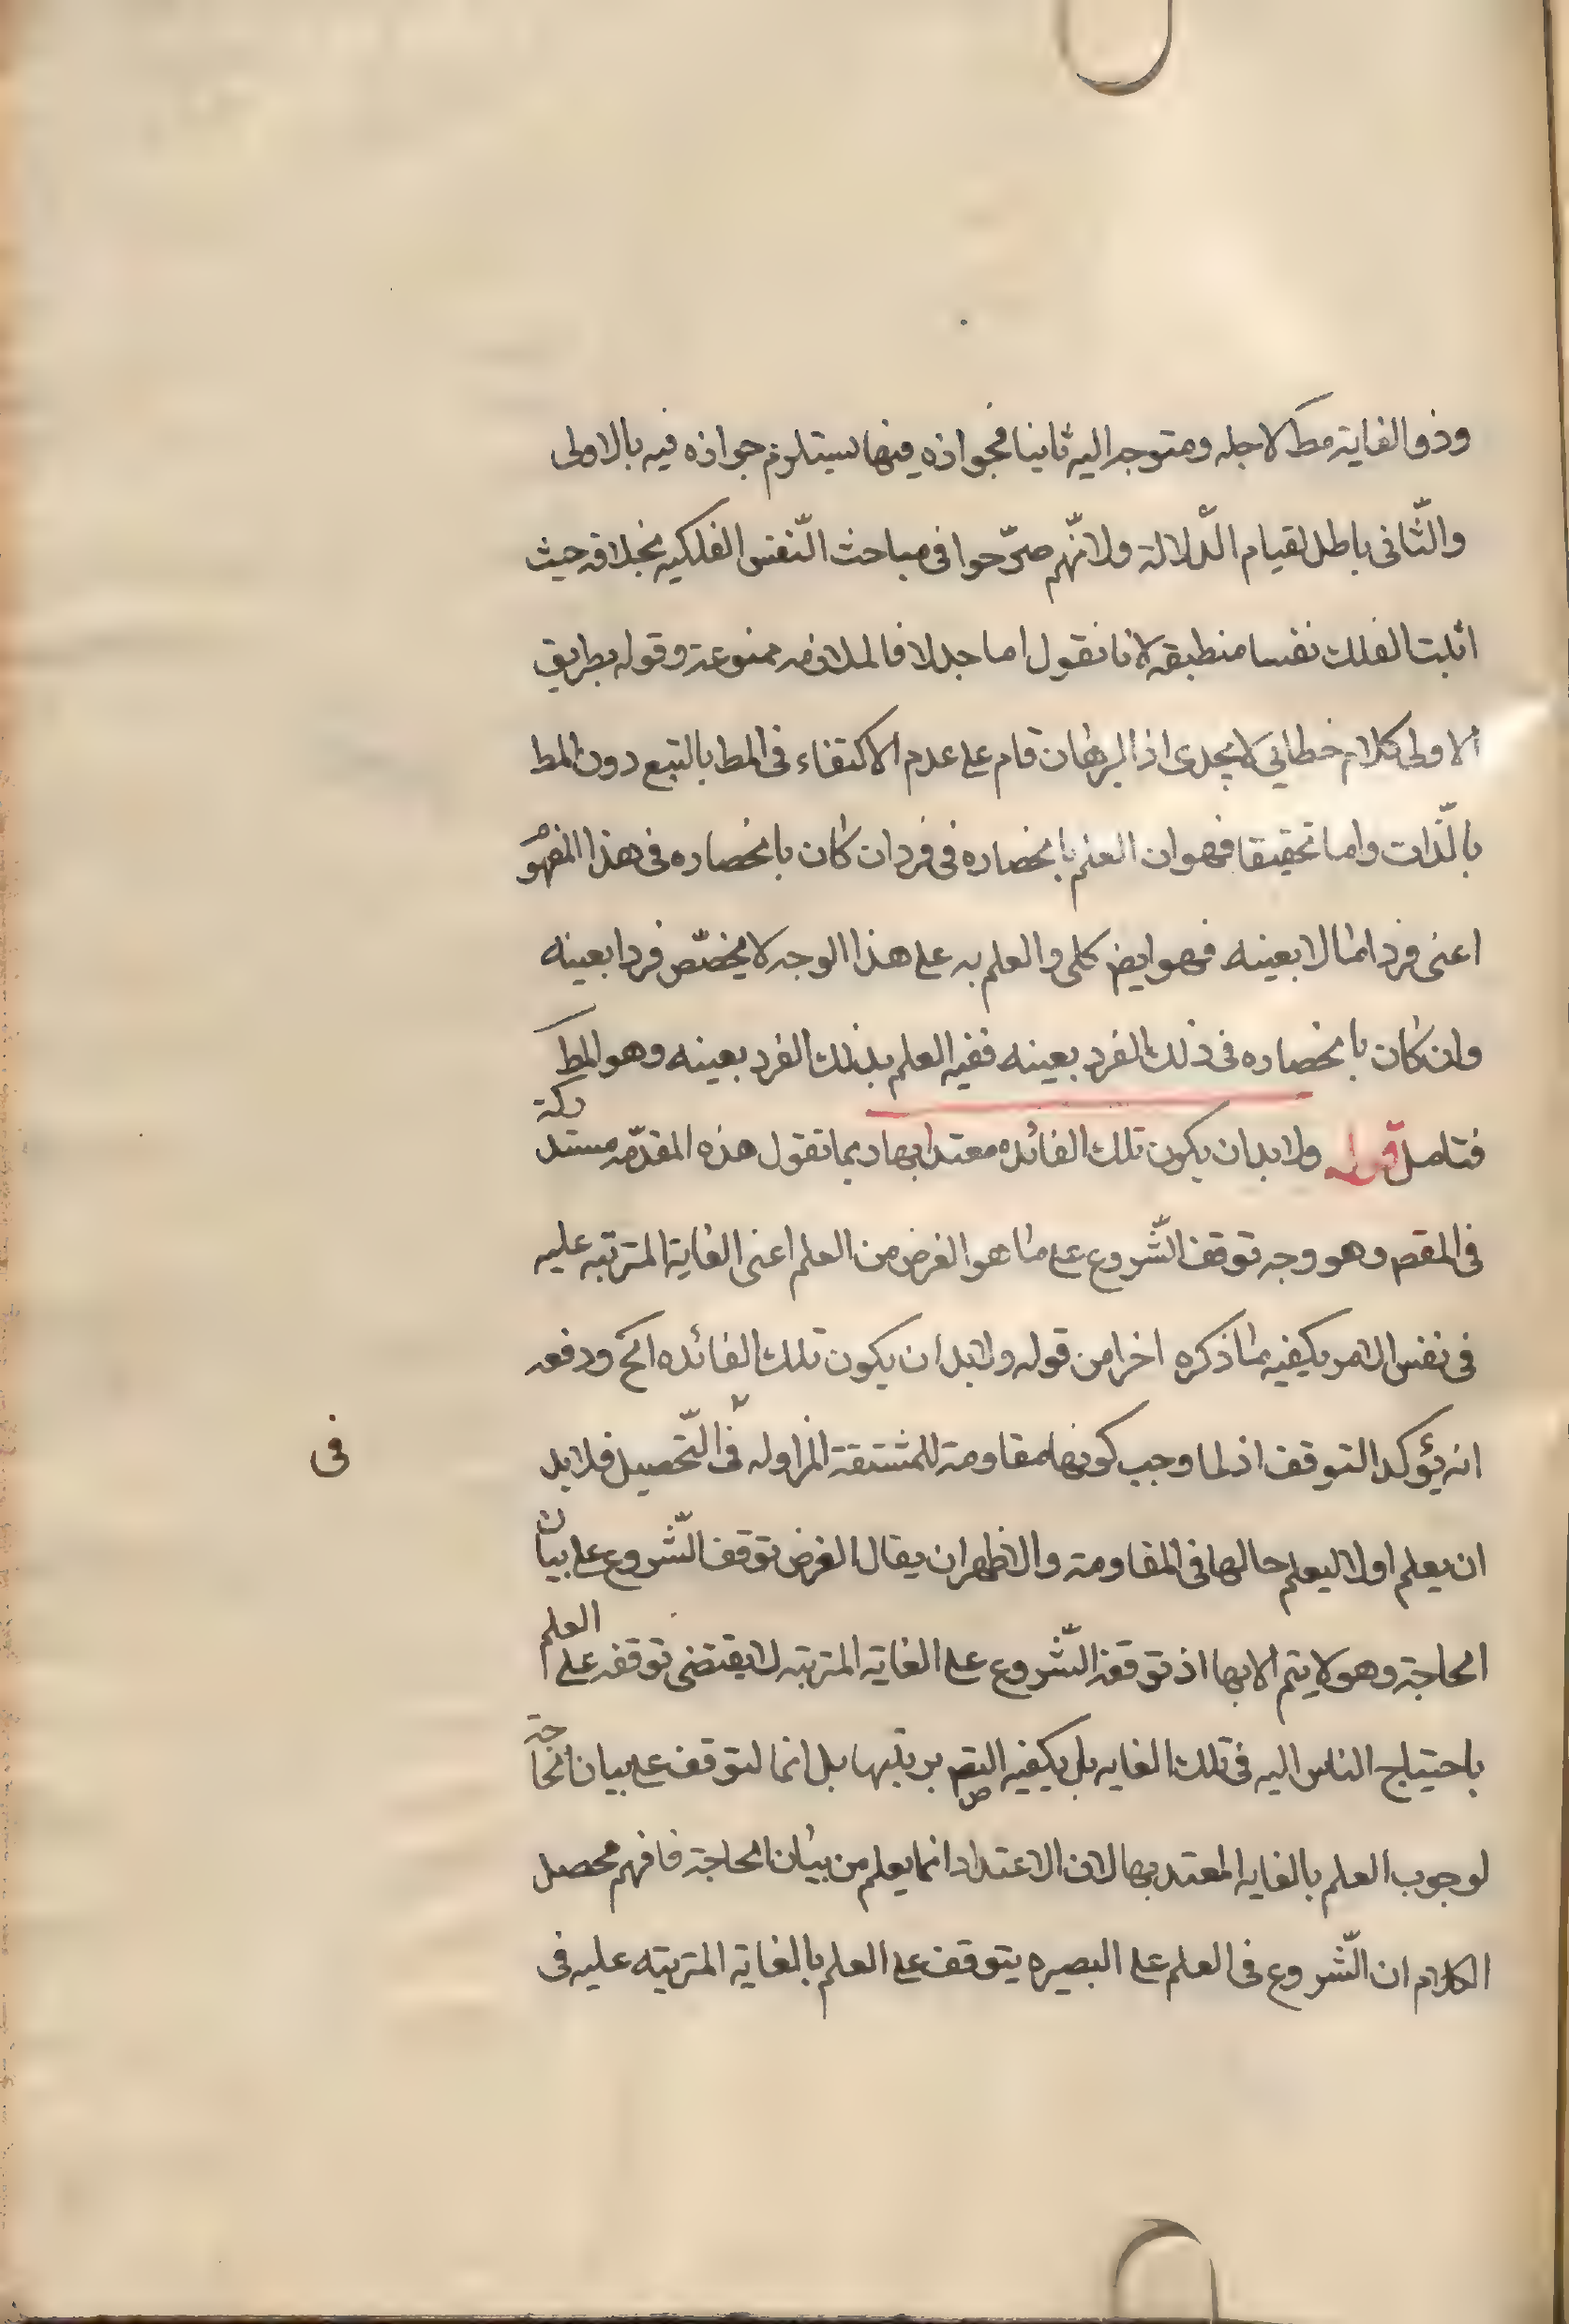 وذو الغاية مط لاجله ومتوجه اليه ثانيا فجوازه فيها يستلزم جوازه فيه بالاولى
والثّانى باطل لقيام الدّلالة ولانّهم صرّحوا فى مباحث النّفس الفلكيه بخلافه حيث
اثبت الفلك نفسا منطبقه لانا نقول اما جدلا فالملازمه ممنوعة وقوله بطريق
الاولى كلام خطابي لا يجدى اذ البرهان قام على عدم الاكتفاء فى المط بالتبع دون المط
بالذّات واما تحقيقا فهو ان العلم بانحصاره فى فرد ان كان بانحصاره فى هذا المفهوم
اعنى فردا ما لا بعينه فهو ايض كلى والعلم به على هذا الوجه لا يخصّص فردا بعينه
وان كان بانحصاره فى ذلك الفرد بعينه ففيه العلم بذلك الفرد بعينه وهو المط
فتامل قوله ولا بد ان يكون تلك الفائده معتدا بها ربما تقول هذه المقدّمه مستدركة
فى المقصم وهو وجه توقف الشّروع على ما هو الغرض من العلم اعنى الغاية المترتبه عليه
فى نفس الامر يكفيه ما ذكره اخرا من قوله ولا بد ان يكون تلك الفائده الخ ودفعه
انه يؤكد التوقف اذ لما وجب كونها مقاومة للمشتقة المزاوله فى التّحصيل فلا بد
فى
ان يعلم اولا ليعلم حالها فى المقاومة والاظهر ان يقال الغرض توقف الشّروع على بيان
الحاجة وهو لا يتم الا بها اذ توقف الشّروع على الغاية المترتبه لا يقتضى توقفه على العلم
باحتياج الناس اليه فى تلك الغايه بل يكفيه التصم بربتبها بل انما لتوقف على بيان الحاجة
لوجوب العلم بالغايه المعتد بها لان الاعتداد انما يعلم من بيان الحاجة فافهم محصل
الكلام ان الشّروع فى العلم على البصيره يتوقف على العلم بالغاية المتربته عليه فى